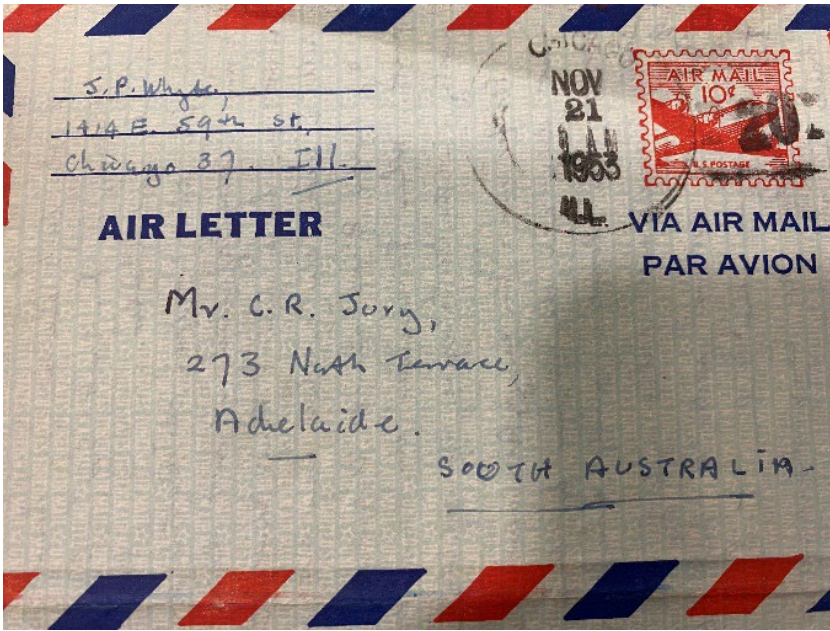 J. P. Whyte,
1414 E. 59th St.,
Chicago 37. Ill.
CHICAGO
NOV
21
1953
ILL.
AIR MAIL
10¢
U.S. POSTAGE
AIR LETTER
VIA AIR MAIL
PAR AVION
Mr. C. R. Jury,
273 North Terrace,
Adelaide.
SOUTH AUSTRALIA.